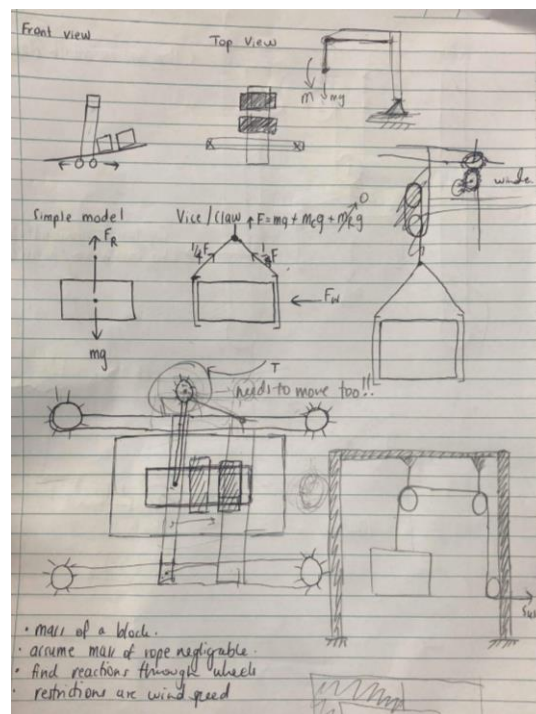 Front view
Top View
M
mg
Simple model
Vice/Claw
F = mg + mcg +
0
FR
mg
¼F
¼F
Fw
T
needs to move too!!
• mass of a block.
• assume mass of rope negligable.
• find reactions through wheels
• restrictions are wind speed